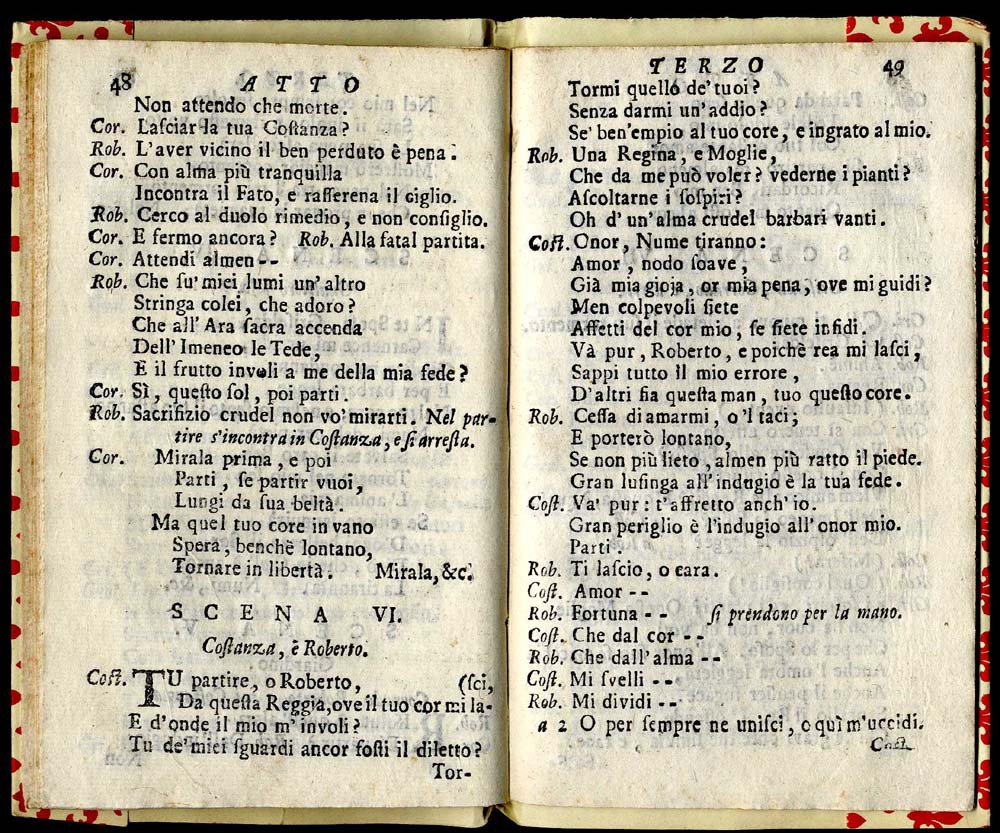 48 ATTO
Non attendo che morte.
Cor. Lasciar la tua Costanza?
Rob. L'aver vicino il ben perduto è pena.
Cor. Con alma più tranquilla
Incontra il Fato, e rasserena il ciglio.
Rob. Cerco al duolo rimedio, e non consiglio.
Cor. E fermo ancora? Rob. Alla fatal partita.
Cor. Attendi almen--
Rob. Che su' miei lumi un' altro
Stringa colei, che adoro?
Che all' Ara sacra accenda
Dell' Imeneo le Tede,
E il frutto involi a me della mia fede?
Cor. Sì, questo sol, poi parti.
Rob. Sacrifizio crudel non vo' mirarti. Nel par-
tire s'incontra in Costanza, e si arresta.
Cor. Mirala prima, e poi
Parti, se partir vuoi,
Lungi da sua beltà.
Ma quel tuo core in vano
Spera, benchè lontano,
Tornare in libertà. Mirala, &c.
SCENA VI.
Costanza, e Roberto.
Cost. TU partire, o Roberto, (sci,
Da questa Reggia, ove il tuo cor mi la-
E d'onde il mio m' involi?
Tu de' miei sguardi ancor fosti il diletto?
Tor-
TERZO 49
Tormi quello de' tuoi?
Senza darmi un' addio?
Se' ben' empio al tuo core, e ingrato al mio.
Rob. Una Regina, e Moglie,
Che da me può voler? vederne i pianti?
Ascoltarne i sospiri?
Oh d' un' alma crudel barbari vanti.
Cost. Onor, Nume tiranno:
Amor, nodo soave,
Già mia gioja, or mia pena, ove mi guidi?
Men colpevoli siete
Affetti del cor mio, se siete infidi.
Và pur, Roberto, e poichè rea mi lasci,
Sappi tutto il mio errore,
D'altri sia questa man, tuo questo core.
Rob. Cessa di amarmi, o 'l taci;
E porterò lontano,
Se non più lieto, almen più ratto il piede.
Gran lusinga all' indugio è la tua fede.
Cost. Va' pur: t'affretto anch' io.
Gran periglio è l'indugio all' onor mio.
Parti --
Rob. Ti lascio, o cara.
Cost. Amor --
Rob. Fortuna -- si prendono per la mano.
Cost. Che dal cor --
Rob. Che dall' alma --
Cost. Mi svelli --
Rob. Mi dividi --
a 2 O per sempre ne unisci, o quì m'uccidi.
Cost.